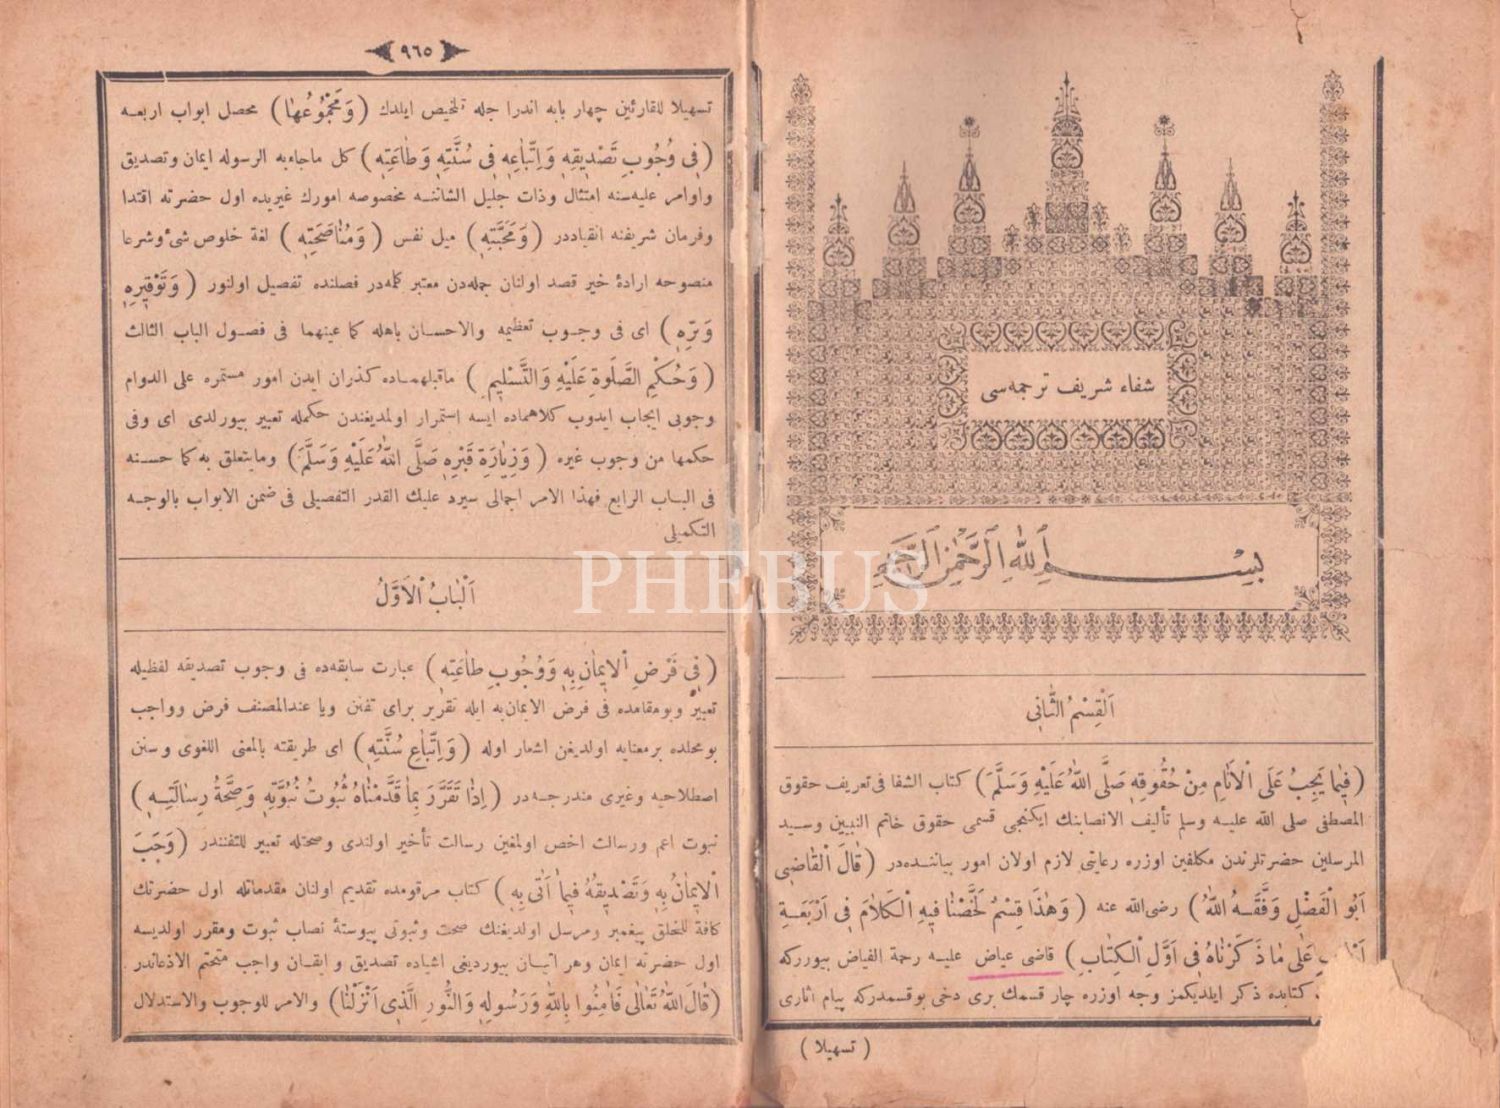 شفاء شریف ترجمه‌سی
بِسْمِ اللّٰهِ الرَّحْمٰنِ الرَّحِيمِ
اَلْقِسْمُ الثَّانِى
(فِيمَا يَجِبُ عَلَى الْاَنَامِ مِنْ حُقُوقِهِ صَلَّى اللّٰهُ عَلَيْهِ وَسَلَّمَ) كتاب الشفا فى تعريف حقوق
المصطفى صلى الله عليه وسلم تأليف الانصابنك ايكنجى قسمى حقوق خاتم النبيين وسيد
المرسلين حضرتلرندن مكلفين اوزره رعايتى لازم اولان امور بياننده‌در (قَالَ الْقَاضِى
اَبُو الْفَضْلِ وَفَّقَهُ اللّٰهُ) رضى الله عنه (وَهٰذَا قِسْمٌ لَخَّصْنَا فِيهِ الْكَلَامَ فِى اَرْبَعَةِ
عَلٰى مَا ذَكَرْنَاهُ فِى اَوَّلِ الْكِتَابِ) قاضى عياض عليه رحمة الفياض بيورركه
كتابده ذكر ايلديكمز وجه اوزره چار قسمك برى دخى بوقسمدركه پيام اثارى
(تسهيلا)
٩٦٥
تسهيلا للقارئين چهار بابه اندرا جله تلخيص ايلدك (وَمَجْمُوعُهَا) محصل ابواب اربعه
(فِى وُجُوبِ تَصْدِيقِهِ وَاِتِّبَاعِهِ فِى سُنَّتِهِ وَطَاعَتِهِ) كل ماجاءبه الرسوله ايمان وتصديق
واوامر عليه‌سنه امتثال وذات جليل الشاننه مخصوصه امورك غيريده اول حضرته اقتدا
وفرمان شريفنه انقياددر (وَمَحَبَّتِهِ) ميل نفس (وَمُنَاصَحَتِهِ) لغة خلوص شئ وشرعا
منصوحه ارادهٔ خير قصد اولنان جمله‌دن معتبر كلمه‌در فصلنده تفصيل اولنور (وَتَوْقِيرِهِ
وَبِرِّهِ) اى فى وجوب تعظيمه والاحسان باهله كما عينهما فى فصول الباب الثالث
(وَحُكْمِ الصَّلٰوةِ عَلَيْهِ وَالتَّسْلِيمِ) ماقبلهماده كذران ايدن امور مستمره على الدوام
وجوبى ايجاب ايدوب كلاهماده ايسه استمرار اولمديغندن حكمله تعبير بيورلدى اى وفى
حكمها من وجوب غيره (وَزِيَارَةِ قَبْرِهِ صَلَّى اللّٰهُ عَلَيْهِ وَسَلَّمَ) ومايتعلق به كما حسنه
فى الباب الرابع فهذا الامر اجمالى سيرد عليك القدر التفصيلى فى ضمن الابواب بالوجه
التكميلى
اَلْبَابُ الْاَوَّلُ
(فِى فَرْضِ الْاِيمَانِ بِهِ وَوُجُوبِ طَاعَتِهِ) عبارت سابقه‌ده فى وجوب تصديقه لفظيله
تعبير وبومقامده فى فرض الايمان‌به ايله تقرير براى تفنن ويا عندالمصنف فرض وواجب
بومحلده برمعنايه اولديغن اشعار اوله (وَاِتِّبَاعِ سُنَّتِهِ) اى طريقته بالمعنى اللغوى وسنن
اصطلاحيه وغيرى مندرجه‌در (اِذَا تَقَرَّرَ بِمَا قَدَّمْنَاهُ ثُبُوتُ نُبُوَّتِهِ وَصِحَّةُ رِسَالَتِهِ)
نبوت اعم ورسالت اخص اولمغين رسالت تأخير اولندى وصحتله تعبير للتفنندر (وَجَبَ
الْاِيمَانُ بِهِ وَتَصْدِيقُهُ فِيمَا اَتٰى بِهِ) كتاب مرقومده تقديم اولنان مقدماتله اول حضرتك
كافة للخلق پيغمبر ومرسل اولديغنك صحت وثبوتى پيوستهٔ نصاب ثبوت ومقرر اولديسه
اول حضرته ايمان وهر اتيان بيورديغى اشياده تصديق و ايقان واجب متحتم الاذعاندر
(قَالَ اللّٰهُ تَعَالٰى فَاٰمِنُوا بِاللّٰهِ وَرَسُولِهِ وَالنُّورِ الَّذِى اَنْزَلْنَا) والامر للوجوب والاستدلال
PHEBUS